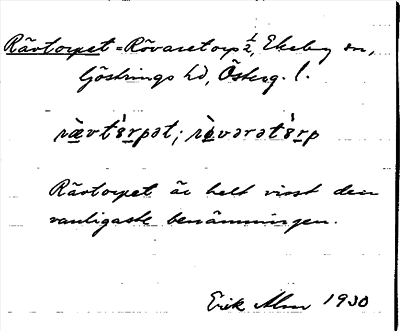 Rävtorpet = Rövaretorp ½, Ekeby sn,
Göstrings hd, Österg. l.
rævtɔrpət; rövərətɔrp
Rävtorpet är helt visst den
vanligaste benämningen.
Erik Alm 1930